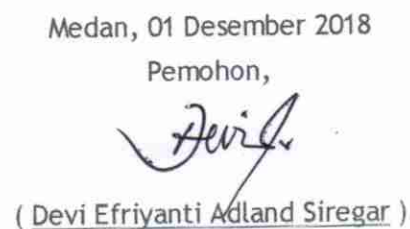 Medan, 01 Desember 2018
Pemohon,
Devi
( Devi Efriyanti Adland Siregar )